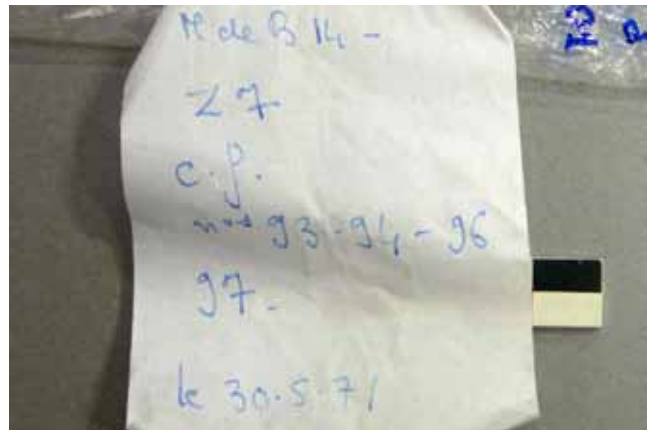 M de B 14 -
Z 7
c. f.
nos 93-94-96
97.
le 30.5.71